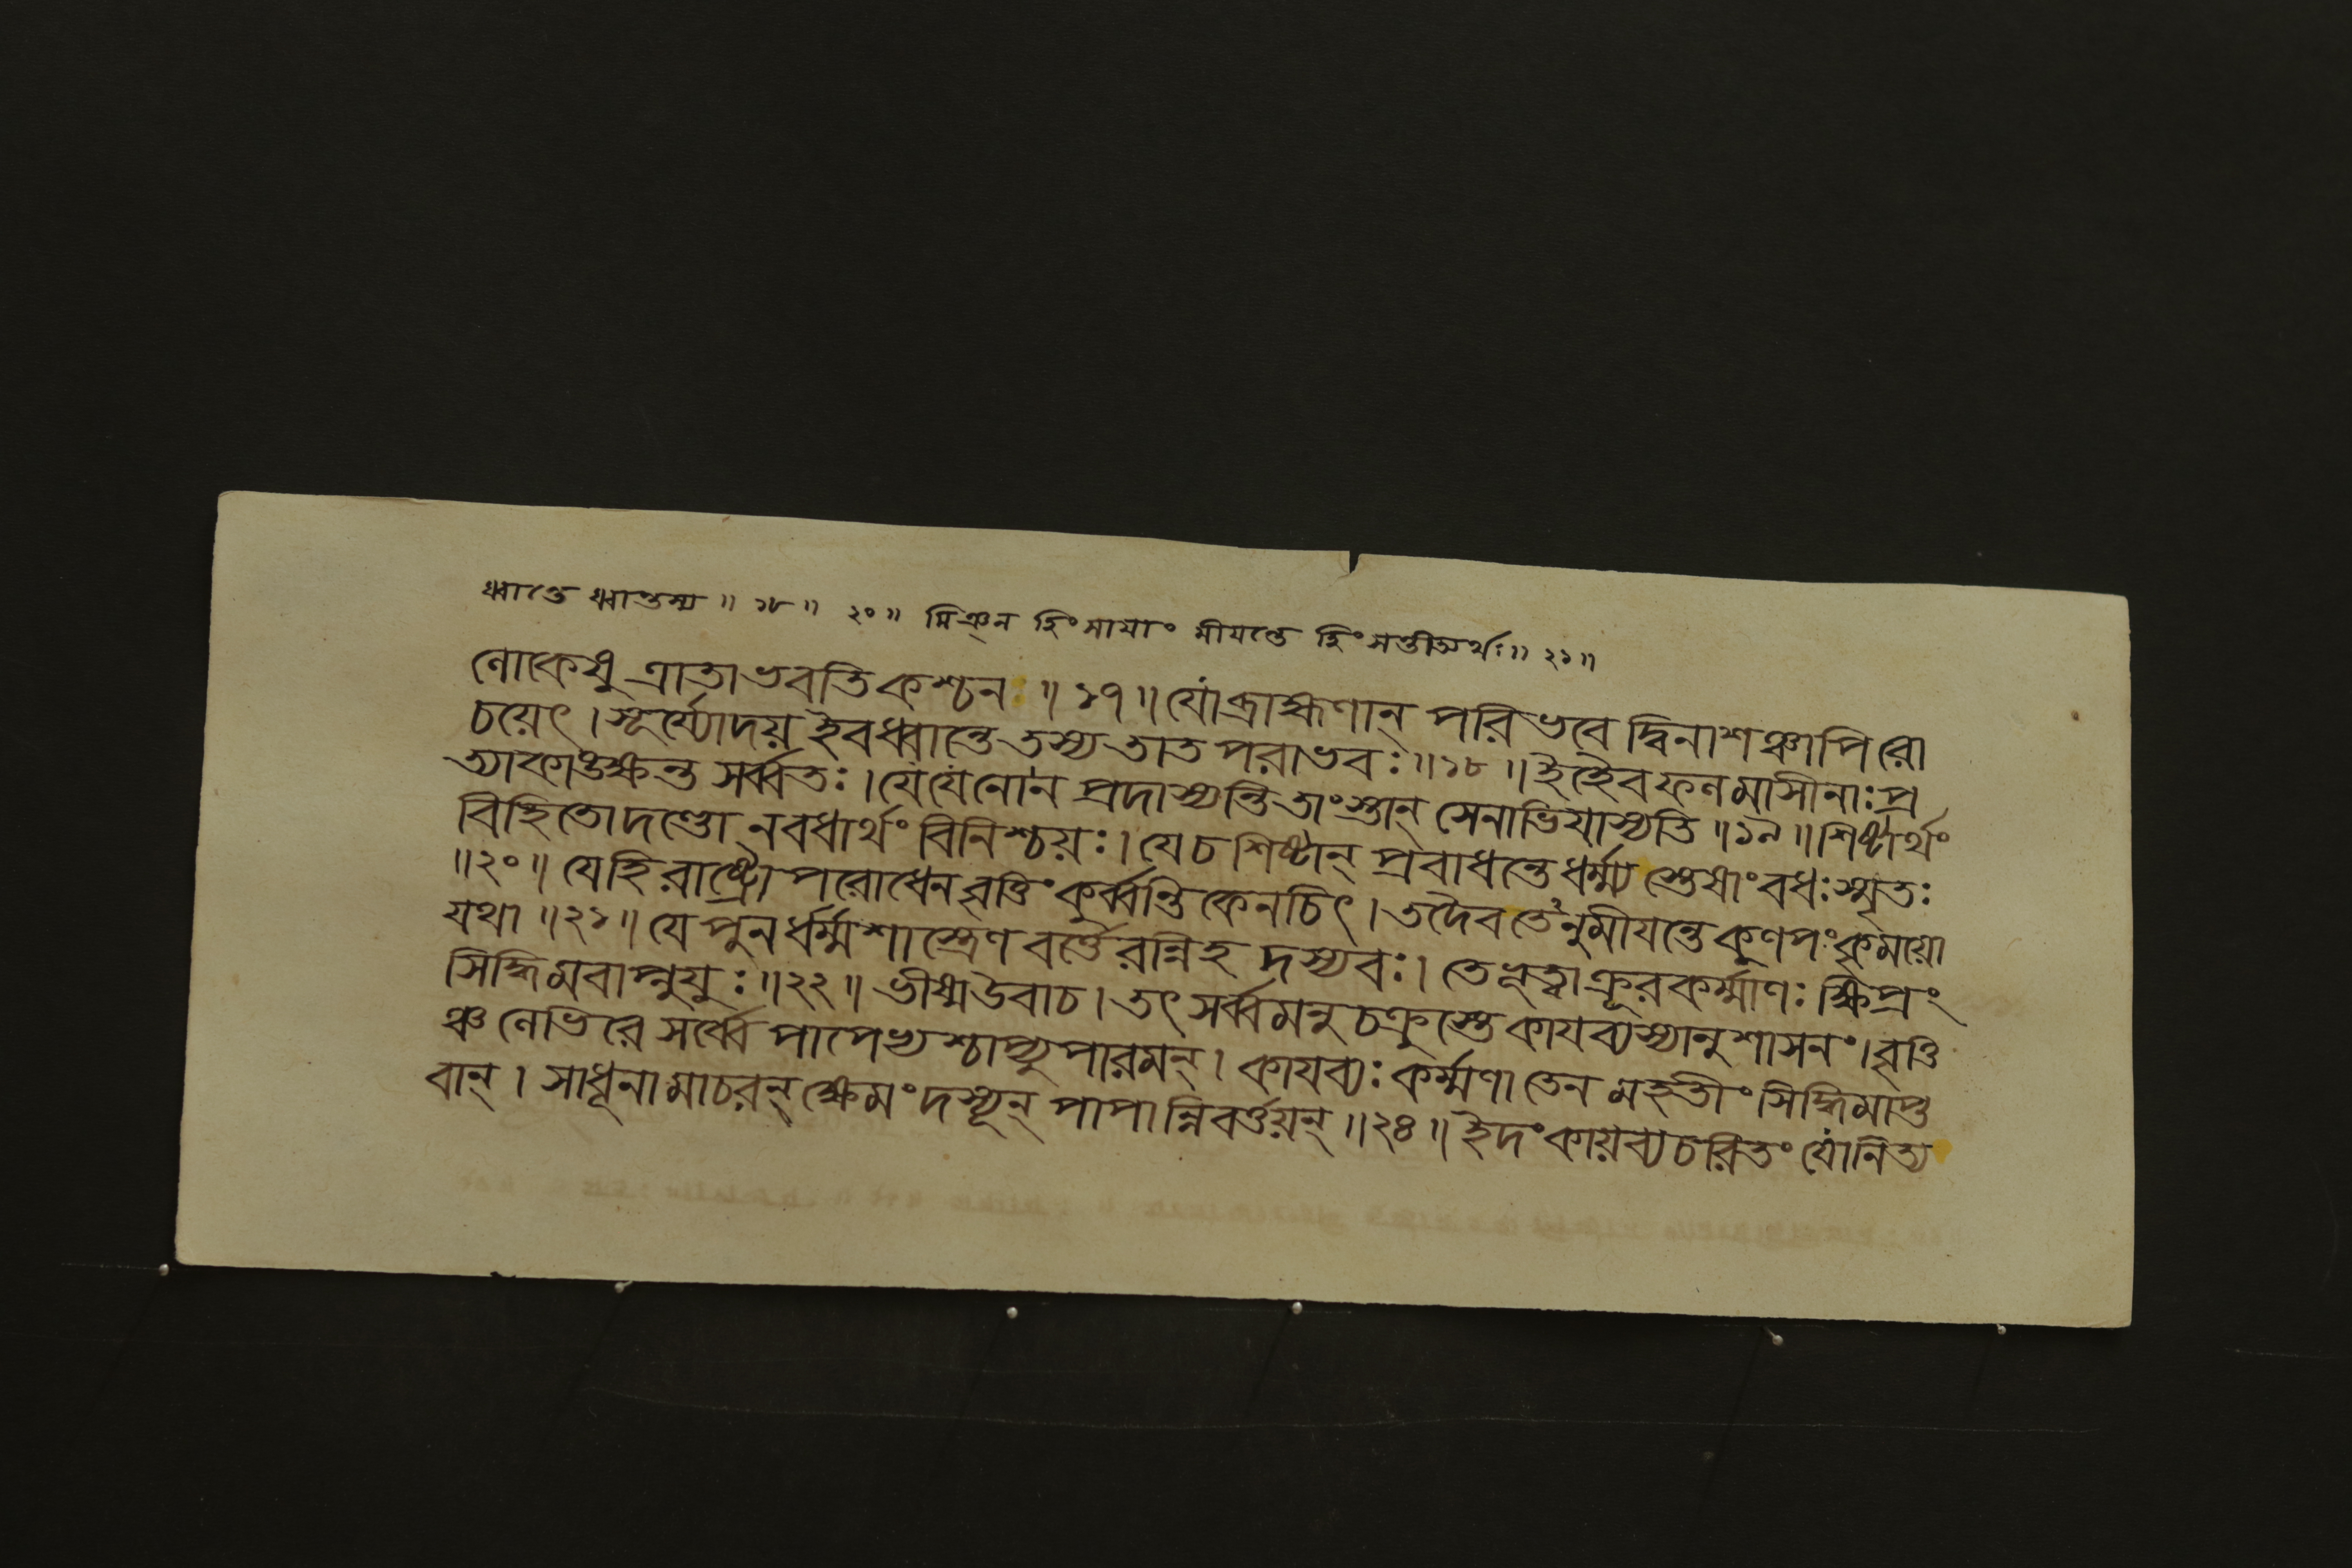 ধ্বান্তে ধ্বান্তস্য ॥ ১৮ ॥ ২০ ॥ হিংসায়াং মীয়ন্তে হিংসন্তীত্যর্থঃ ॥ ২১ ॥
লোকেষু ত্রাতা ভবতি কশ্চন ॥ ১৭ ॥ যো ব্রাহ্মণান্ পরিভবেদ্বিনাশঞ্চাপি রো
চয়েৎ । সূর্য্যোদয় ইব ধ্বান্তে তস্য তাত পরাভবঃ ॥ ১৮ ॥ ইহৈব ফলমাসীনাঃ প্র
ত্যাকাঙক্ষন্ত সর্ব্বতঃ । যে যে নো ন প্রদাস্যন্তি তাংস্তান্ সেনাভিযাস্যতি ॥ ১৯ ॥ শিষ্টার্থং
বিহিতো দণ্ডো ন বধার্থং বিনিশ্চয়ঃ । যে চ শিষ্টান্ প্রবাধন্তে ধর্ম্ম্যস্তেষাং বধঃ স্মৃতঃ
॥ ২০ ॥ যে হি রাষ্ট্রোপরোধেন বৃত্তিং কুর্ব্বন্তি কেনচিৎ । তদৈব তেনুমীয়ন্তে কুণপং কৃময়ো
যথা ॥ ২১ ॥ যে পুনর্ধর্ম্মশাস্ত্রেণ বর্ত্তেরন্নিহ দস্যবঃ । তে ভূত্বা ক্রূরকর্ম্মাণঃ ক্ষিপ্রং
সিদ্ধিমবাপ্নুযুঃ ॥ ২২ ॥ ভীষ্ম উবাচ । তৎ সর্ব্বমনুচক্রুস্তে কায়ব্যস্যানুশাসনং । বৃত্তি
ঞ্চ লেভিরে সর্ব্বে পাপেভ্যশ্চাপ্যুপারমন্ । কায়ব্যঃ কর্ম্মণা তেন মহতীং সিদ্ধিমাপ্ত
বান্ । সাধূনামাচরন্ ক্ষেমং দস্যূন্ পাপান্নিবর্ত্তয়ন্ ॥ ২৪ ॥ ইদং কায়ব্যচরিতং যো নিত্য